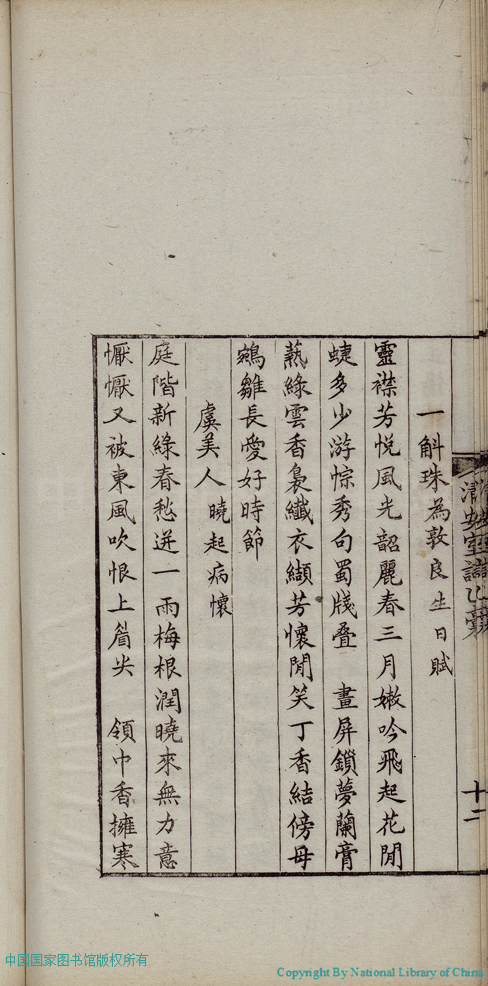 一斛珠 為敦良生日賦
靈襟芳悅風光韶麗春三月嫩吟飛起花閒
蜨多少游悰秀句蜀牋叠　畫屏鎖夢蘭膏
爇綠雲香裊纖衣纈芳懷閒笑丁香結傍母
鵷雛長愛好時節
虞美人 曉起病懷
庭階新綠春愁迸一雨梅根潤曉來無力意
懨懨又被東風吹恨上眉尖　領巾香擁寒
室
乙
十二
中国国家图书馆版权所有
Copyright By National Library of China